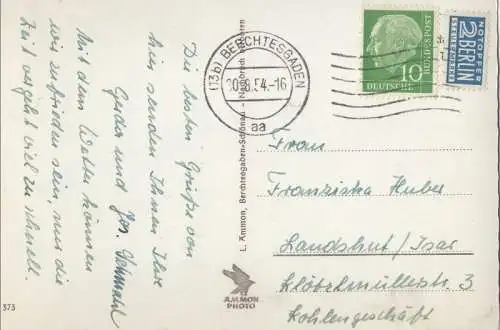 Die besten Grüße von
hier senden Ihnen Ihre
Gerda und Jos.
Mit dem Wetter können
wir zufrieden sein, nur die
Zeit vergeht viel zu schnell.
373
L. Ammon, Berchtesgaden-Schönau - Nachdruck verboten
AMMON
PHOTO
(13b) BERCHTESGADEN
8.54.-16
aa
10
DEUTSCHE
BUNDESPOST
NOTOPFER
2
BERLIN
STEUERMARKE
Frau
Franziska Huber
Landshut / Isar
Klötzlmüllerstr. 3
Kohlengeschäft